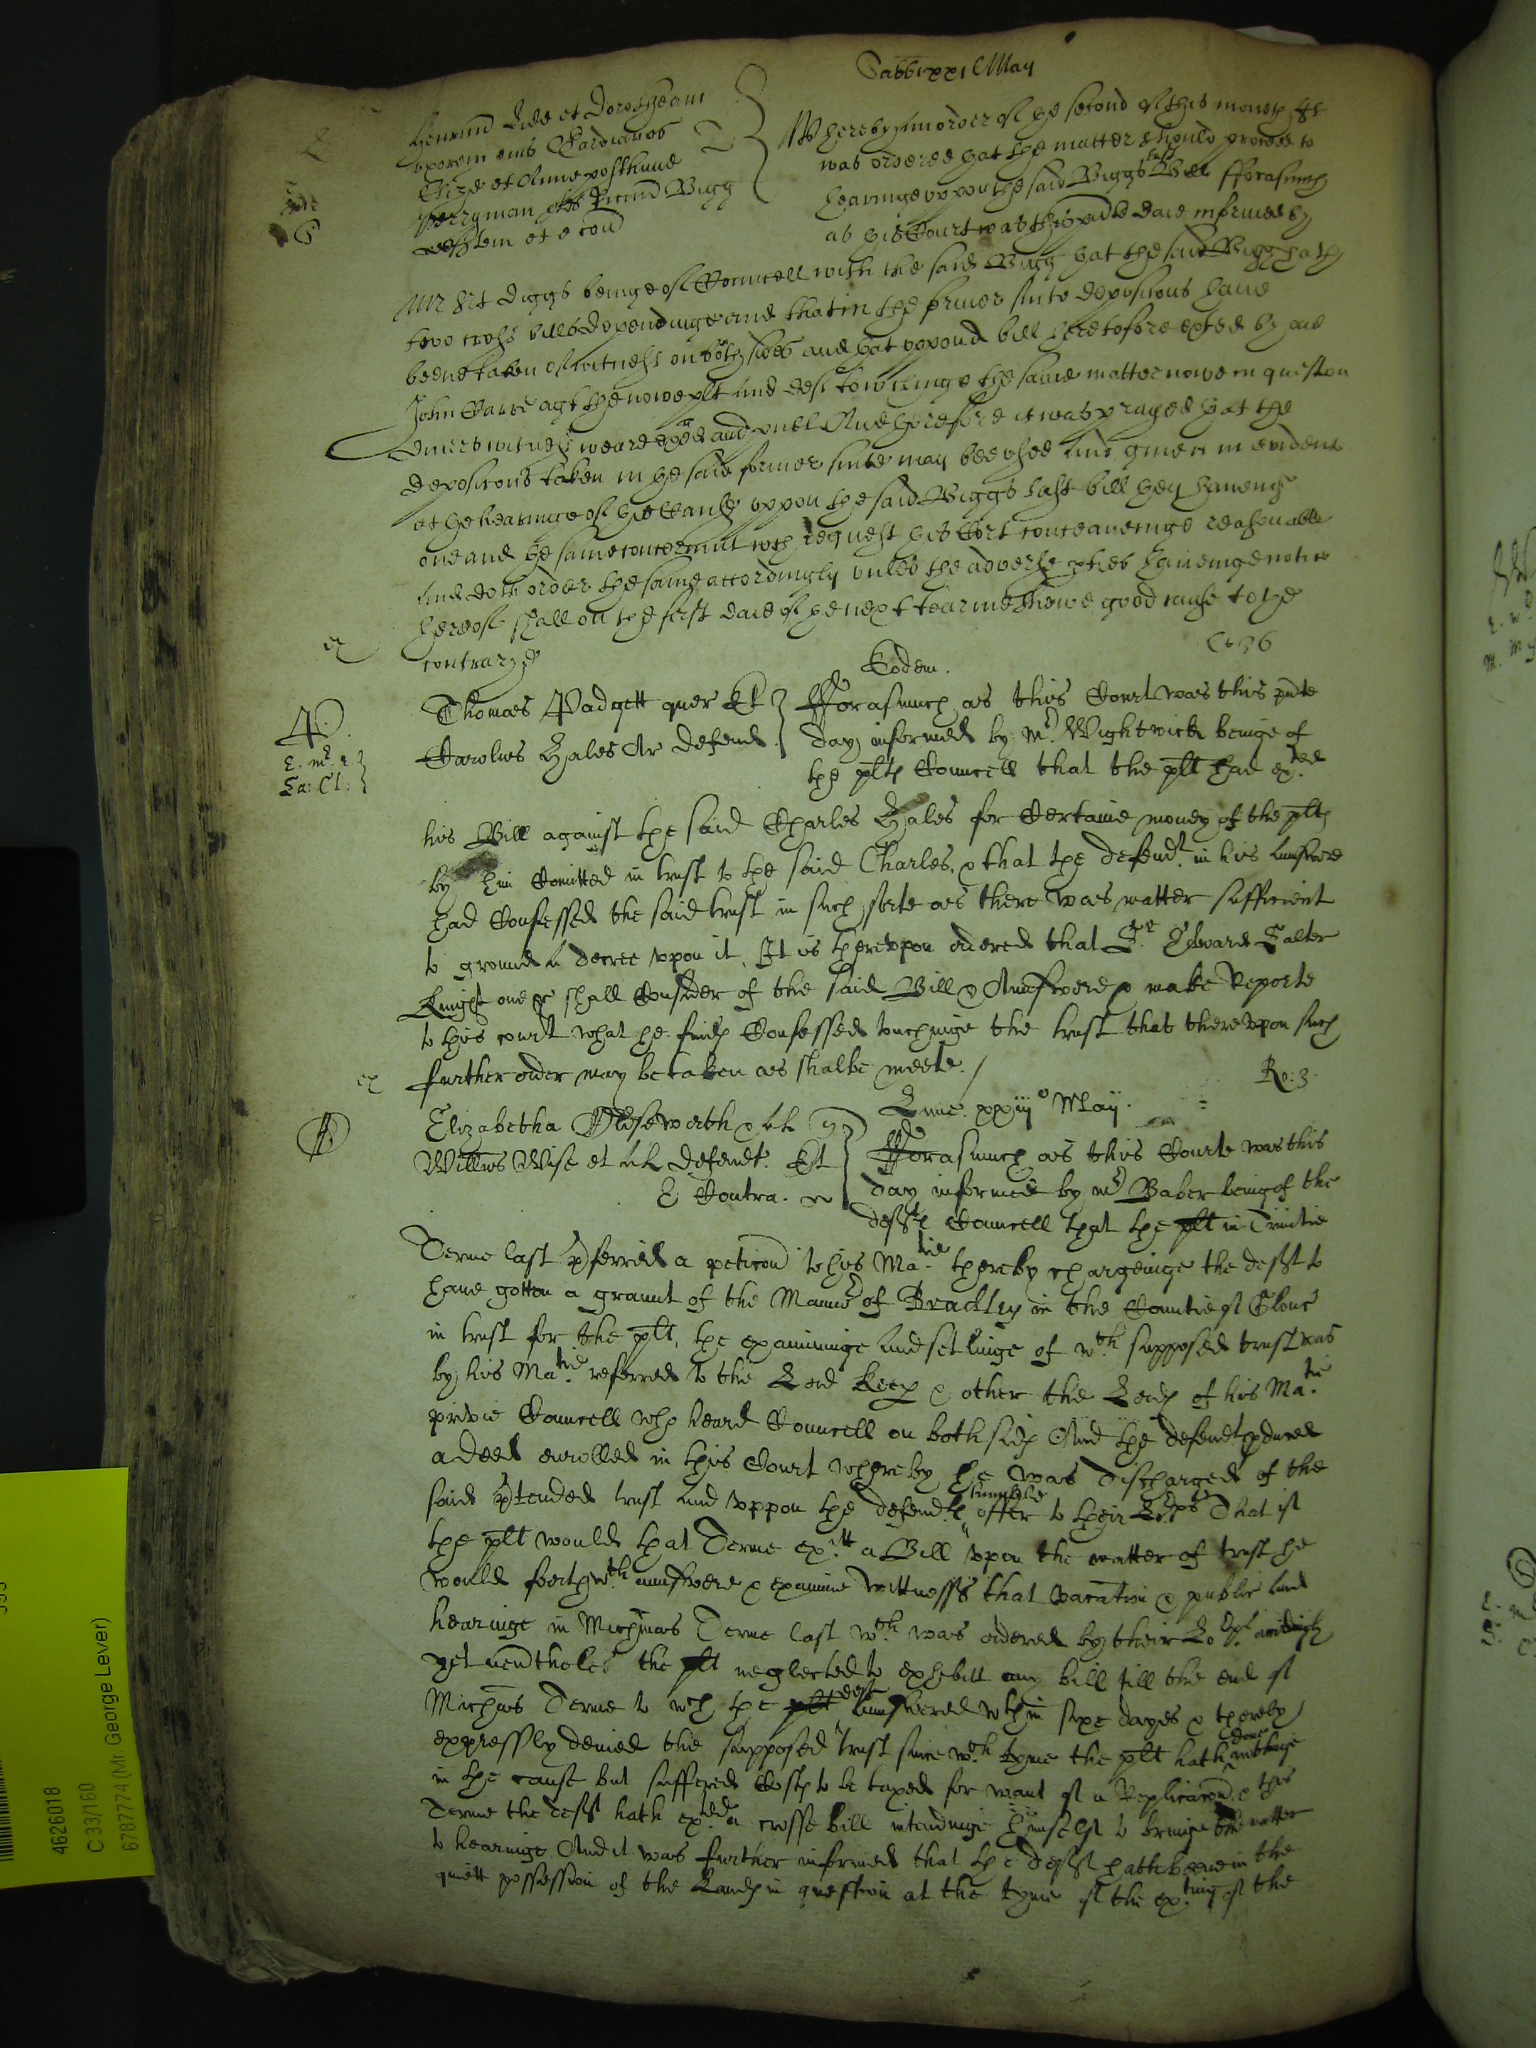 Sabbi xxi May
Henricum Lide et Dorotheam
uxorem eius Gardianos
Eliz et Anne posthume
Berryman Ricum Bigg
deftem et e con
Whereby an order of the second of this moneth It
was ordered that the matter should proceed to
hearinge uppon the said Biggs last Bill fforasmuch
as this Court was this pnte daie informed by
Mr Diggs beinge of Councell with the said Bigg that the said Bigg hath
two bills dependinge and that in the former suite deposicons have
beene taken of witness on both sides and that uppon a bill heretofore exhted by one
John Carre agt the nowe plt and deft towchinge the same matter nowe in question
divers witness weare exed and publ And therefore it was prayed that the
deposicons taken in the said former suite may bee used and given in evidence
at the hearinge of the Cause uppon the said Biggs last bill they havinge
one and the same wch request this Cort conceaveinge reasonable
and doth order the same accordingly unles the adverse pties haveinge notice
hereof shall on the first daie of the next tearme showe good cause to the
contrary
Eodem.
Thomas Padgett quer
Carolus Hales Ar defend
fforasmuch as this Court was this pnte
day informed by Mr Wightwick beinge of
the plts Councell that the plt had exted
his Bill against the said Charles Hales for Certaine money of the plts
by him Comitted in trust to the said Charles, & that the defendt in his Answere
had Confessed the said trust in such sorte as there was matter sufficient
to ground a decree upon it, It is thereupon ordered that Sr Edward Salter
Knight one &c shall Consider of the said Bill & Answere & make Reporte
to this court what he finds Confessed touchinge the trust that thereupon such
further order may be taken as shalbe meete. /
Ro: 3.
Lune xxiij o Maij.
Elizabetha Oldseworth & al
Willms Wise et al defendt. Et
E Contra.
fforasmuch as this Courte was this
day informed by mr Baber being of the
defts Councell that the plt in Trinitie
Terme last pferred a peticon to his Matie thereby chargeinge the deft to
have gotten a graunt of the Mannor of Bradley in the Countie of Glouc
in trust for the plt, the examininge and setlinge of wth supposed trust was
by his Matie referred to the Lord Keep & other the Lords of his Maties
privie Councell who heard Councell on both sids And the defendt pduced
a deed enrolled in this Court whereby he was discharged of the
said ptended trust and uppon the defendts humble offer to their Lops That if
the plt would that Terme exit a Bill upon the matter of trust he
would forthwth answere & examine wittnesses that vacation & publish and
hearinge in Michmas Terme last wch was ordered by their Lops
yet nevtheles the plt neglected to exhebitt any bill till the end of
Michas Terme to wch the plt deft answered wthin sixe dayes & thereby
expressly denied the supposed trust since wch tyme the plt hath done nothinge
in the cause but suffered Costs to be taxed for want of a Replicacon & this
Terme the deft hath exted a crosse bill intendinge himselfe to bringe the matter
to hearinge And it was further informed that the deft hath beene in the
quiett possession of the Lands in question at the tyme of the exting of the
4626018
C 33/160
6787774 (Mr George Lever)